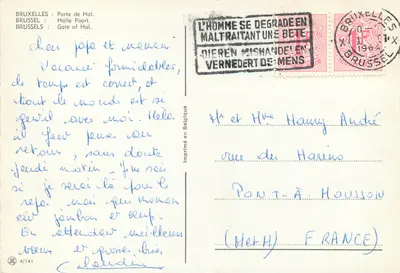 BRUXELLES : Porte de Hal.
BRUSSEL : Halle Poort.
BRUSSELS : Gate of Hal.
L'HOMME SE DEGRADE EN
MALTRAITANT UNE BETE
DIEREN MISHANDELEN
VERNEDERT DE MENS
BRUXELLES
1964
BRUSSEL
Chers papa et maman
Vacances formidables,
le temps est correct, et
tout le monde est si
gentil avec moi. Hélas
il faut penser au
retour, sans doute
jeudi matin.
si je serai là pour le
repas, mais
jambon et
En attendant meilleurs
et grosses bises
Claudine
Imprimé en Belgique
Mr et Mme Hanry André
rue des
PONT-À-MOUSSON
(M et M) FRANCE